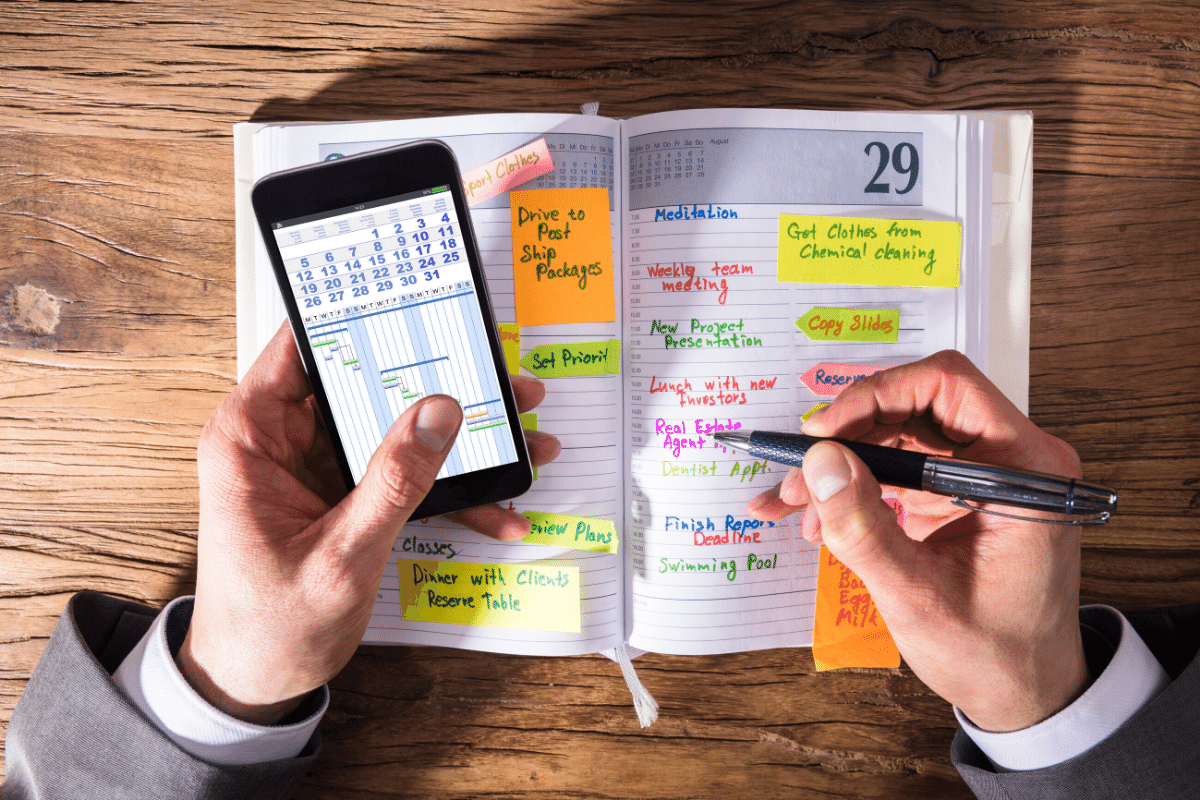 Sport Clothes
Drive to
Post
Ship
Packages
Set Priorit
Review Plans
Classes
Dinner with Clients
Reserve Table
5 6 7 8 9 10 11
12 13 14 15 16 17 18
19 20 21 22 23 24 25
26 27 28 29 30 31
M T W T F S S M T W T F S S M T W T F S S
August
29
Meditation
Weekly team
meeting
New Project
Presentation
Lunch with new
Investors
Real Estate
Agent
Dentist Appt.
Finish Repor
Deadline
Swimming Pool
Get Clothes from
Chemical cleaning
Copy Slides
Reserve
Egg
Milk